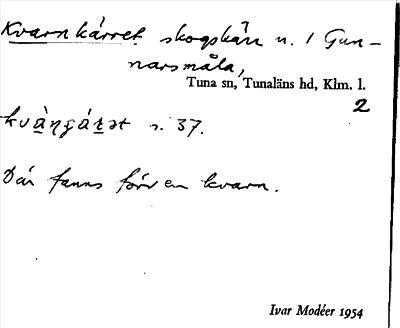 Kvarnkärret. skogskärr n. / Gun-
narsmåla,
Tuna sn, Tunaläns hd, Klm. l.
2
kvàn̠gáṟət s. 37.
Där fanns förr en kvarn.
Ivar Modéer 1954